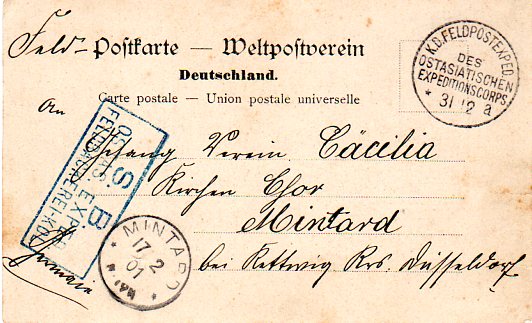 Feld- Postkarte — Weltpostverein
Deutschland.
Carte postale — Union postale universelle
K.D.FELDPOSTEXPED.
DES
OSTASIATISCHEN
EXPEDITIONSCORPS
* 31 12 a
An
Gesang Verein Cäcilia
Kirchen Chor
Mintard
bei Kettwig Krs. Düsseldorf
S. B.
MINTARD
17 2
01